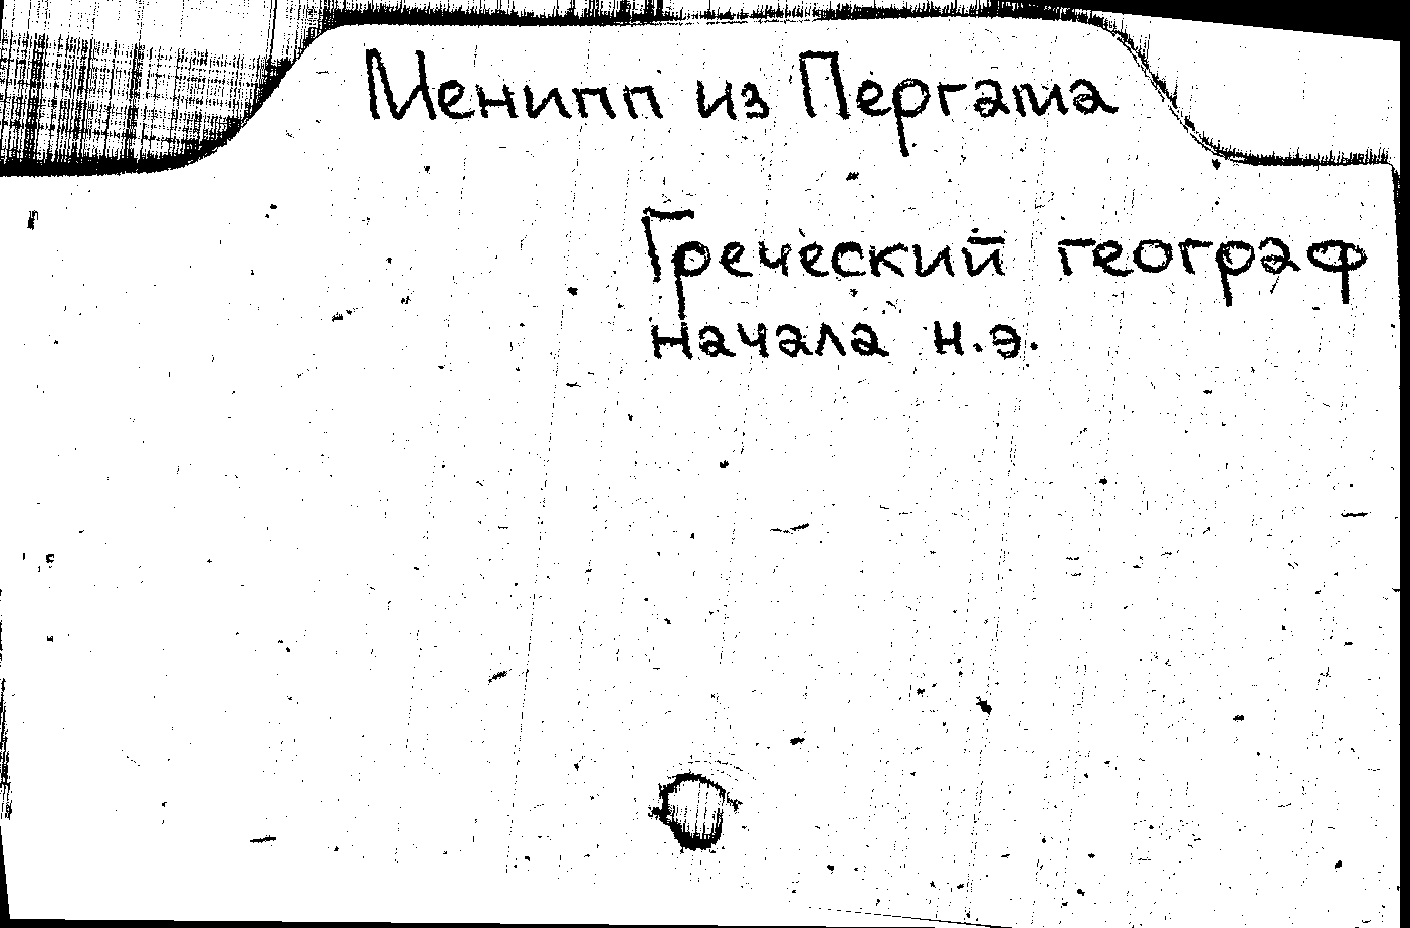 Менипп из Пергама
Греческий географ
начала н.э.